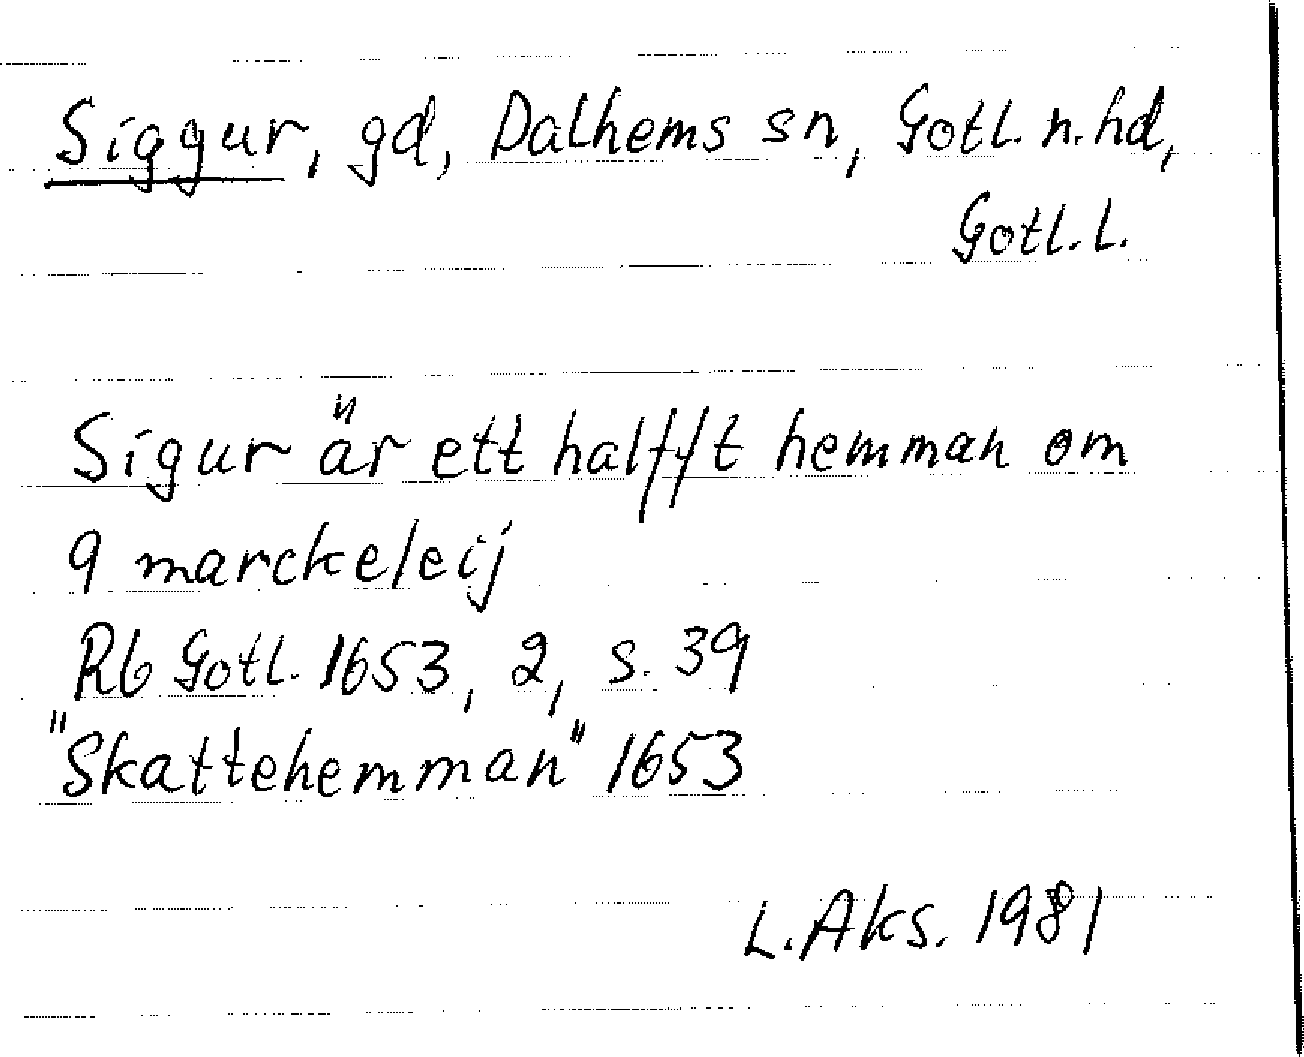 Siggur, gd, Dalhems sn, Gotl. n. hd,
Gotl. l.
Sigur är ett halfft hemman om
9 marckeleij
Rb Gotl. 1653, 2, s. 39
"Skattehemman" 1653
L. Aks. 1981